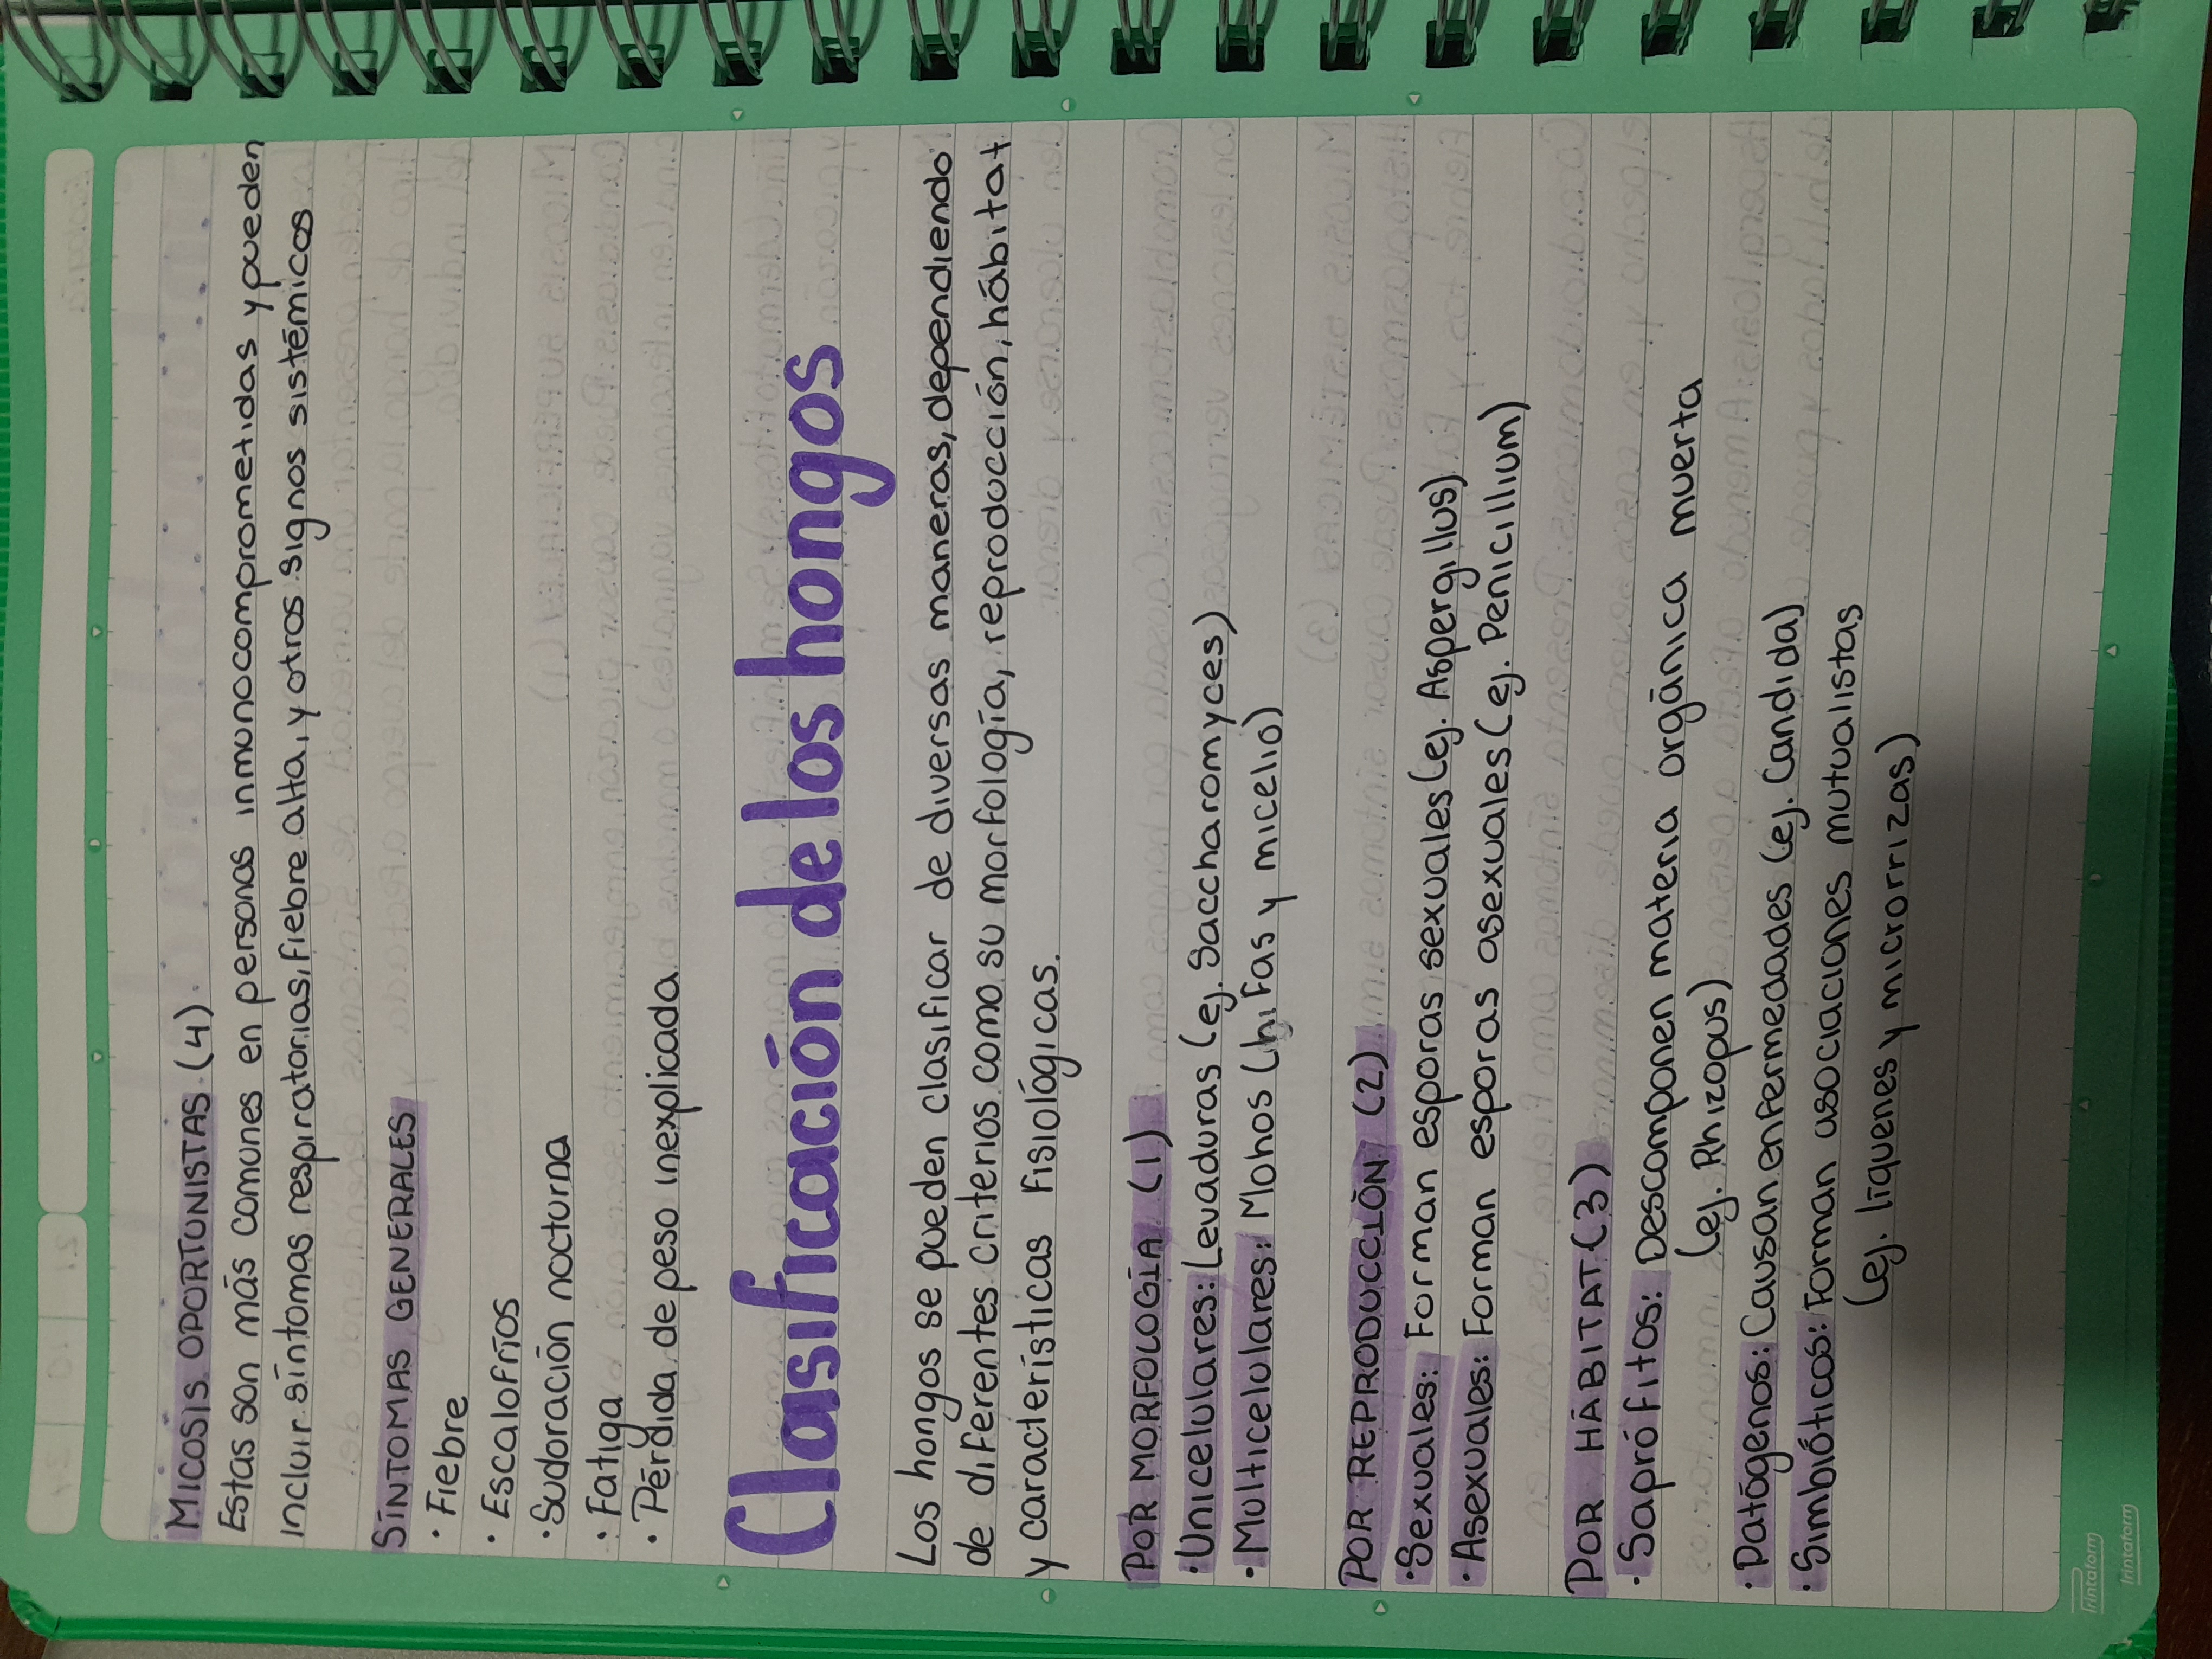 MICOSIS OPORTUNISTAS (4)
Estas son más comunes en personas inmunocomprometidas y pueden
incluir síntomas respiratorias, fiebre alta, y otros signos sistémicos
SÍNTOMAS GENERALES
· Fiebre
· Escalofríos
· Sudoración nocturna
· Fatiga
· Pérdida de peso inexplicada
Clasificación de los hongos
Los hongos se pueden clasificar de diversas maneras, dependiendo
de diferentes criterios como su morfología, reproducción, hábitat
y características fisiológicas.
POR MORFOLOGÍA (1)
· Unicelulares: Levaduras (ej. Saccharomyces)
· Multicelulares: Mohos (hifas y micelio)
POR REPRODUCCIÓN (2)
· Sexuales: Forman esporas sexuales (ej. Aspergillus)
· Asexuales: Forman esporas asexuales (ej. Penicillium)
POR HÁBITAT (3)
· Saprófitos: Descomponen materia orgánica muerta
(ej. Rhizopus)
· Patógenos: Causan enfermedades (ej. Candida)
· Simbióticos: Forman asociaciones mutualistas
(ej. líquenes y microrrizas)
Printaform
Printaform